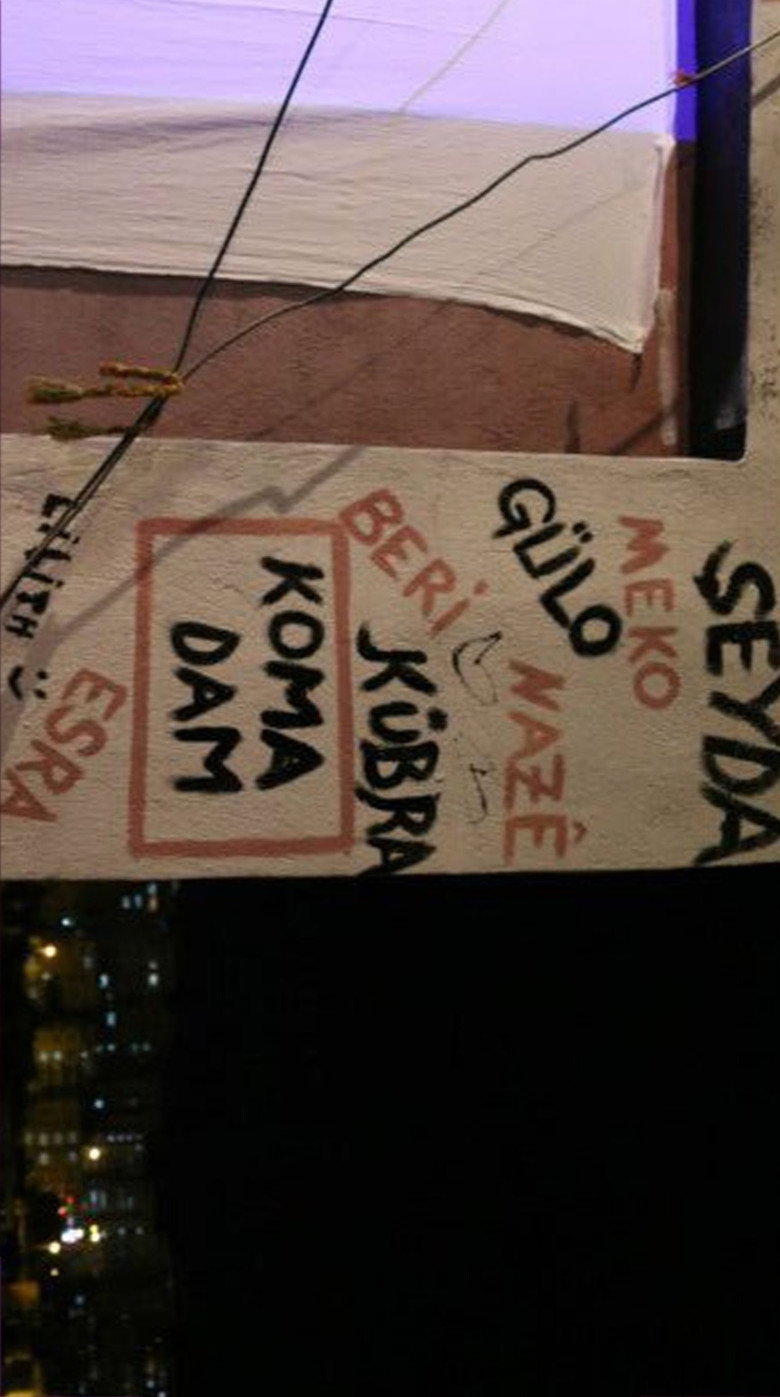 ŞEYDA
MEKO
GÜLO
NAZÊ
BERİ
KÜBRA
KOMA
DAM
ESRA
LİLİTH